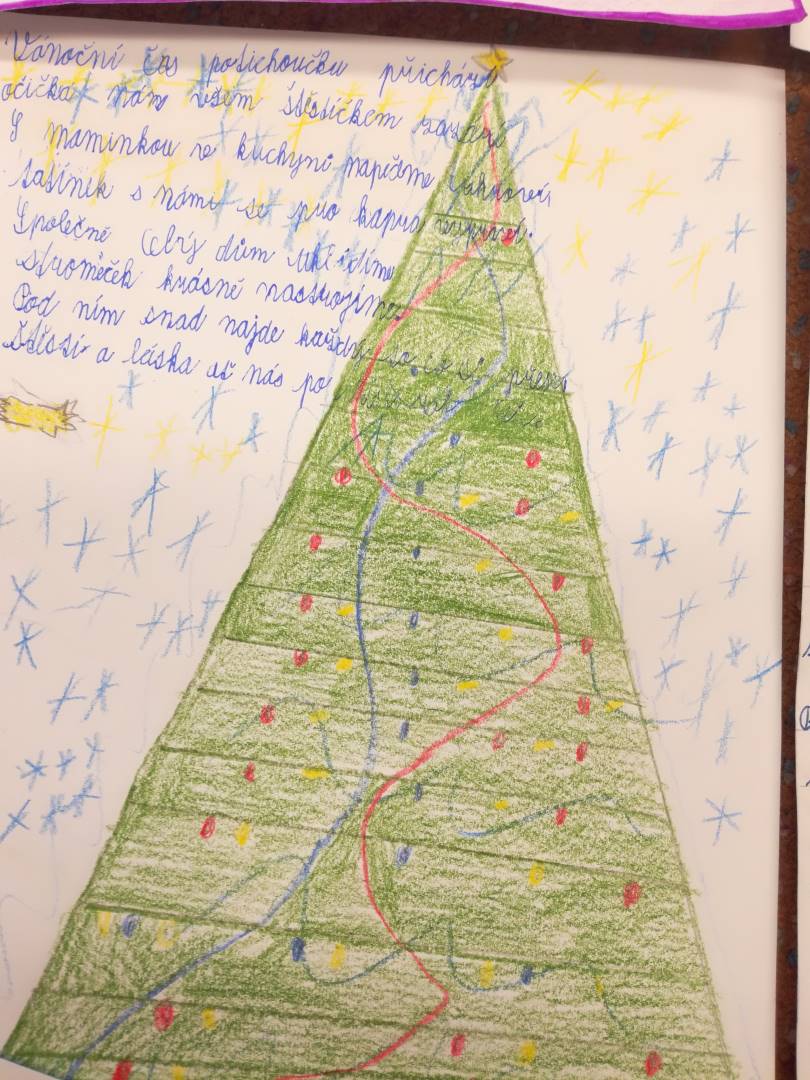 Vánoční čas potichoučku přichází
očička nám všem štěstíčkem zazáří
S maminkou v kuchyni napečme cukroví
tatínek s námi se pro kapra vypraví.
Společně celý dům uklidíme
stromeček krásně nastrojíme.
Pod ním snad najde každý to co si přeje
Štěstí a láska ať nás po